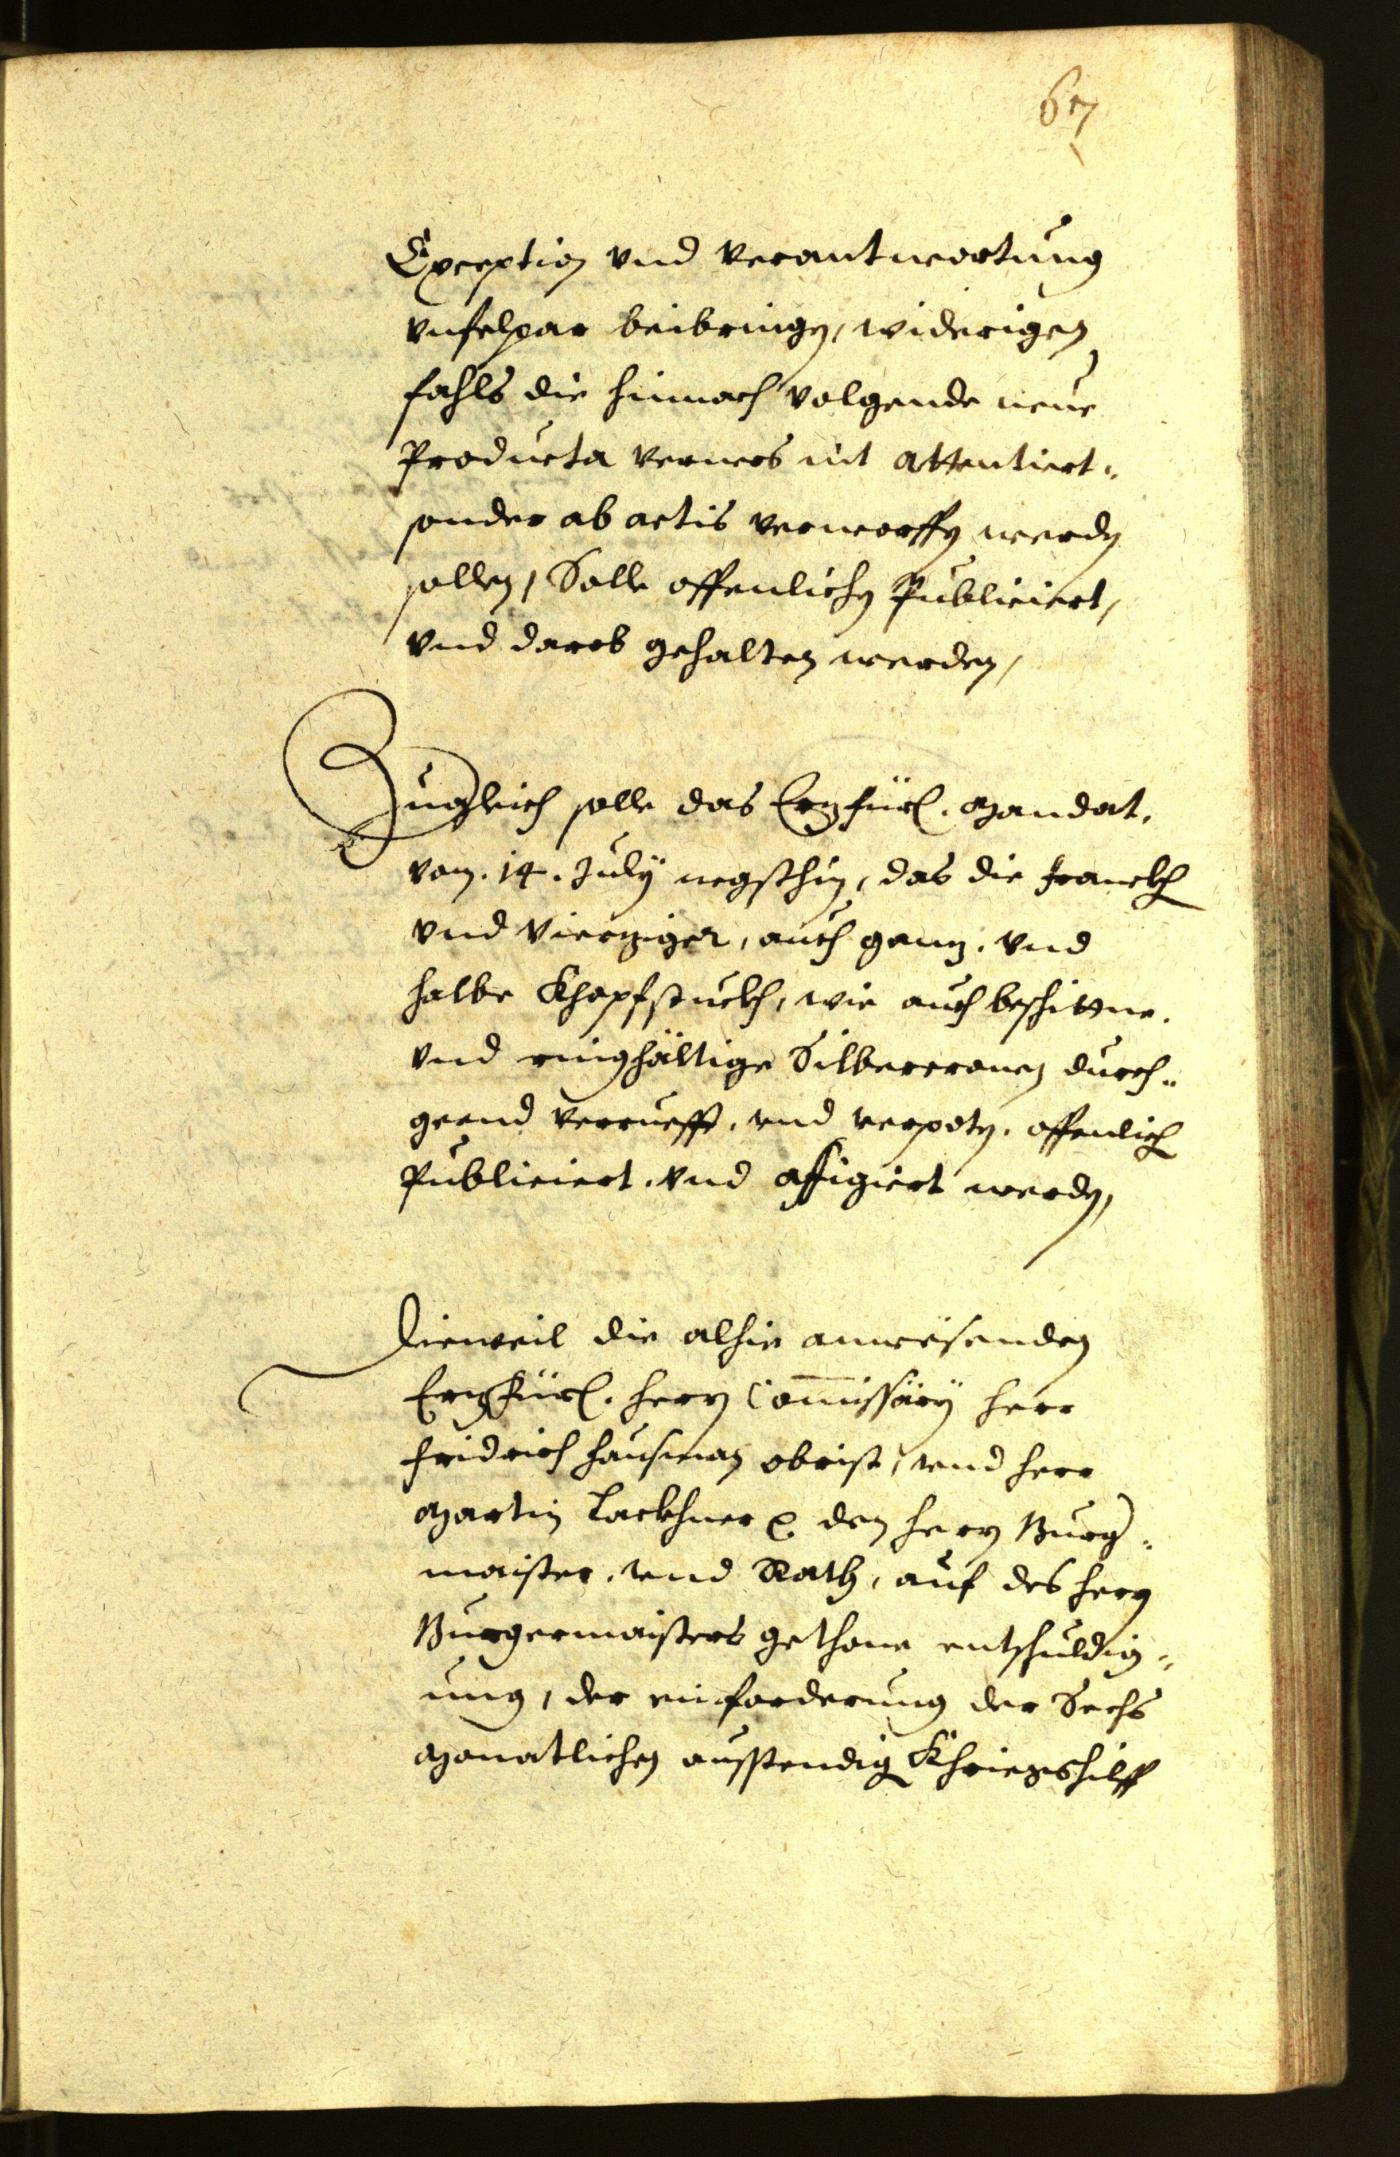 67
Exception vnd verantwortung
vnfelpar beibringen, widerigen
fahls die hinnach volgende neue
Producta verners nit attentiert,
sonder ab actis verworffen werden
sollen, Solle offenlichen Publiciert,
vnd darob gehalten werden,
Zugleich solle das Erzfürl. Mandat,
von .14. July negsthin, das die Franckh
vnd Vierziger, auch ganz. vnd
halbe Khopfstuckh, wie auch beschittne.
vnd ringhältige Silbercronen durch-
geend verruefft. vnd verpoten. offenlich
Publiciert. vnd affigiert werden,
Dieweil die alhie anwesenden
Erzfürl. herrn Commissäry herr
Fridrich Hausman obrist, vnd herr
Martin Lackhner den herrn Burger-
maister. vnd Rath, auf des herrn
Burgermaisters gethone entschuldig-
ung, der einforderung der Sechs
Monatlichen ausstendig Khriegshilff